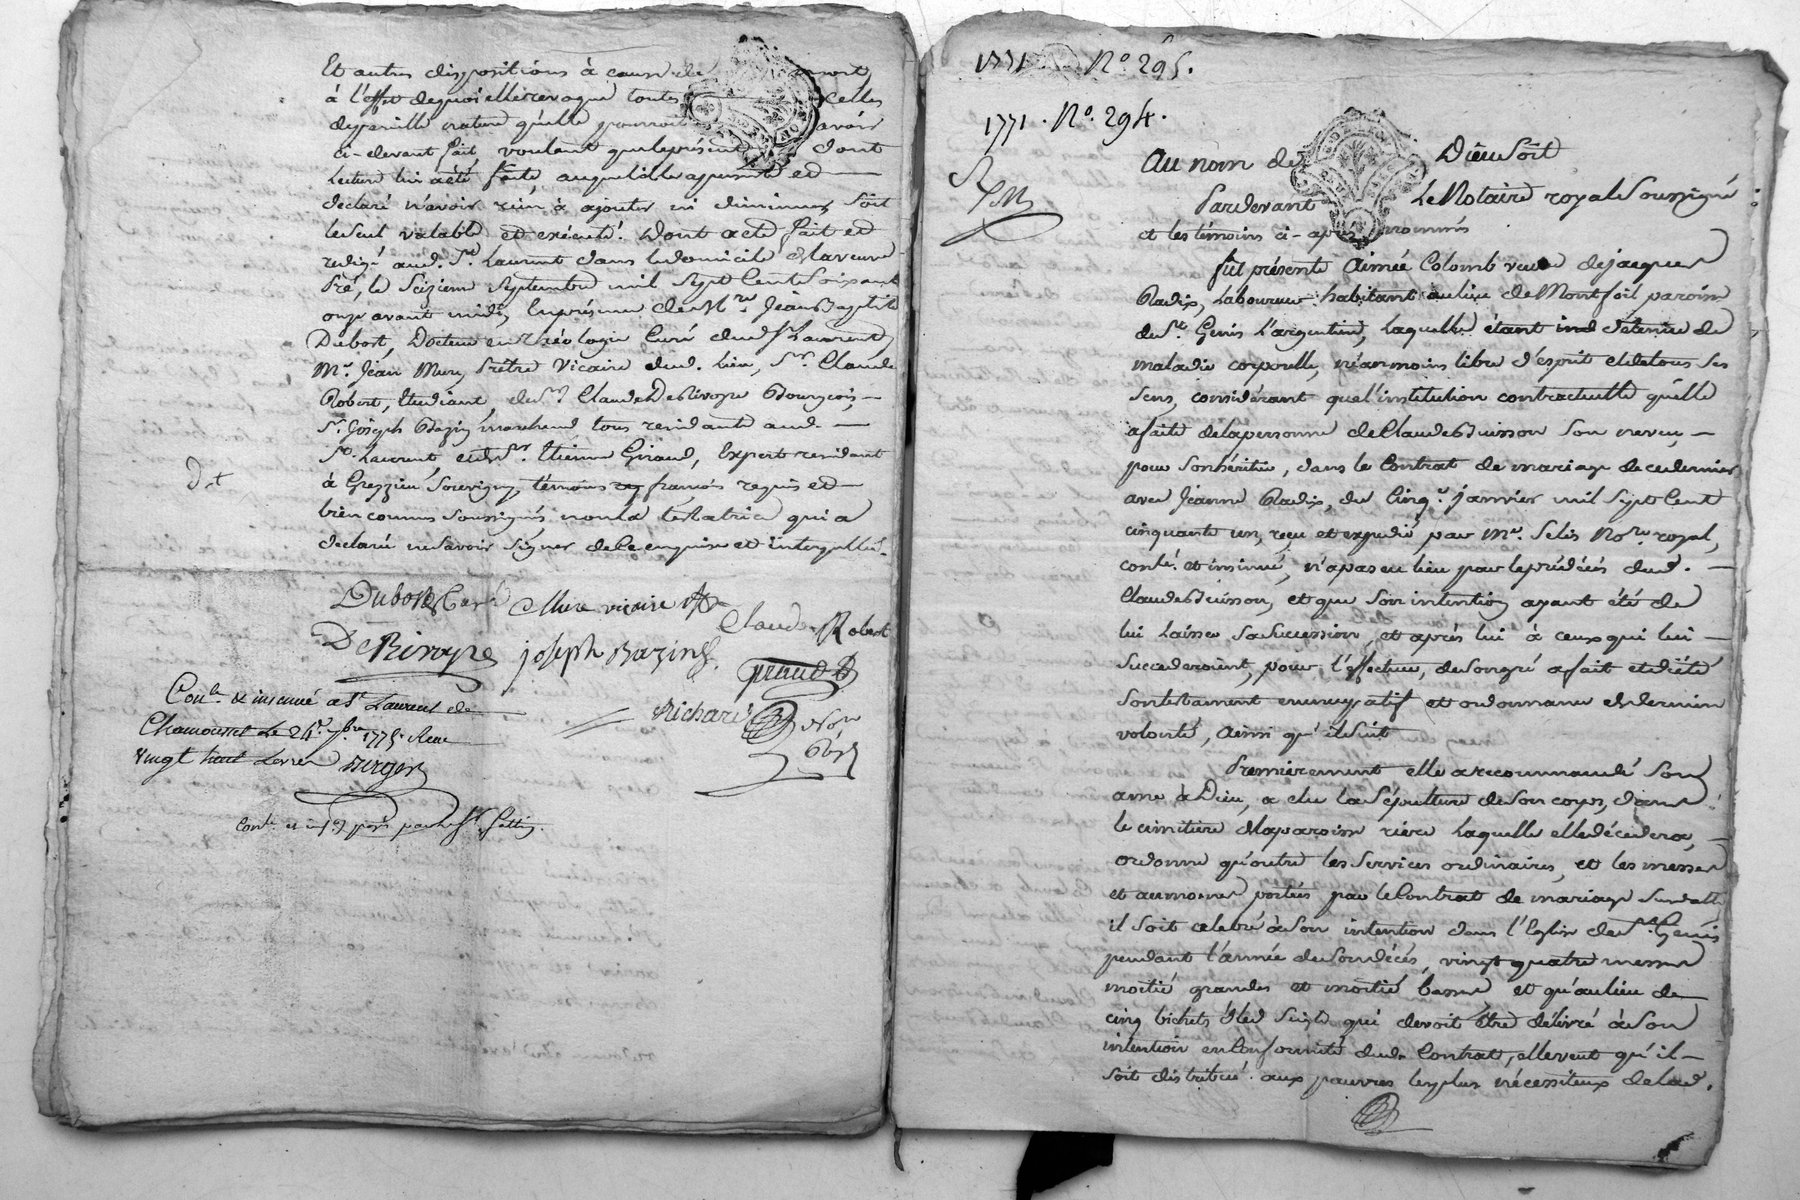 Et autres dispositions à cause de mort,
à l'effet dequoi elle revoque toutes celles
depareille nature qu'elle pourroit avoir
ci-devant fait, voulant que le présent dont
lecture lui a été faite, auquel elle a persisté et
declaré n'avoir rien à ajouter ni diminuer, soit
le seul valable et exécuté. Dont acte fait et
redigé aud. St. Laurent dans le domicile de la veuve
Pré, le seizieme septembre mil sept cent soixante
onze avant midi, en présence de Mre. Jean Baptiste
Dubost, Docteur en théologie Curé dud. St Laurent,
Mr. Jean Mure, Prêtre Vicaire dud. lieu, Sr. Claude
Robert, Etudiant, Claude DeRivoyre Bourgeois,
Sr. Joseph Bazin, marchand tous residants aud.
St. Laurent et Sr. Etienne Giraud, Expert residant
à Grezzieu Souvigny, témoins requis et
bien connus soussignés, non la testatrice qui a
declaré ne savoir signer de ce enquise et interpellée.
D.t
Dubost Curé Mure vicaire
Claude Robert
DeRivoyre joseph Bazin
Giraud
Richard Nore
Roy
Conlé & insinué a St Laurent de
Chamousset Le 24e 7bre 1771. Reçu
vingt huit livres Berger
1771 No. 295.
1771. No. 294.
Au nom de Dieu soit
Pardevant Le Notaire royal Soussigné
et les témoins ci-après nommés
fut présente Aimée Colomb veuve de jacques
Radix, Laboureur habitant au lieu de Montfoil paroisse
de St. Genis L'argentiere, laquelle étant détenue de
maladie corporelle, néanmoins libre d'esprit et de tous ses
sens, considérant que l'institution contractuelle qu'elle
a faite de la personne de Claude Buisson son neveu,
pour son héritier, dans le Contrat de mariage de ce dernier
avec Jeanne Radix, du Cinq janvier mil sept cent
cinquante un, reçu et expedié par Me. Selis Nore. royal,
conlé. et insinué, n'a pas eu lieu par le prédécés dud.
Claude Buisson, et que son intention ayant été de
lui laisser sa succession, et après lui à ceux qui lui
succederoient, pour l'effectuer, de son gré a fait et dicté
son testament nuncupatif et ordonnance de derniere
volonté, ainsi qu'il suit
Premierement elle a recommandé son
ame à Dieu, a elu la sépulture de son corps, dans
le cimitiere de la paroisse riere laquelle elle décedera,
ordonne qu'outre les services ordinaires, et les messes
et aumones portées par le Contrat de mariage susdatté
il soit celebré à son intention dans l'Eglise de St. Genis
pendant l'année de son décés, vingt quatre messes
moitié grandes et moitié basses et qu'au lieu de
cinq bichets bled seigle qui devoit être délivré à son
intention en conformité dud. Contrat, elle veut qu'il
soit distribué aux pauvres les plus nécessiteux de lad.